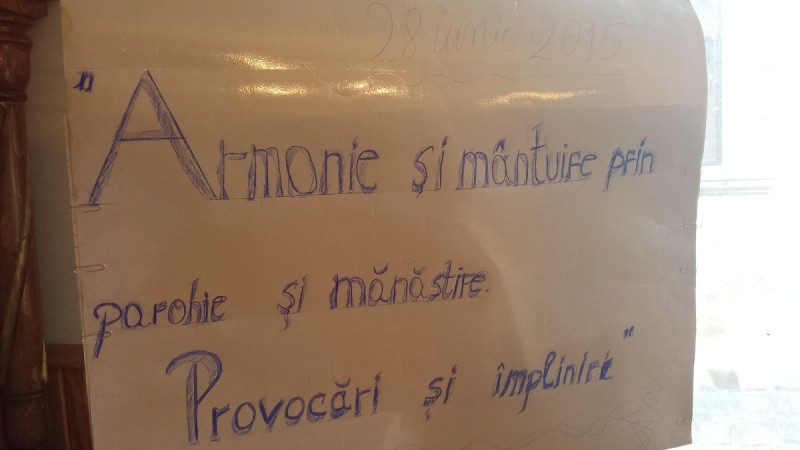 28 iunie 2015
"Armonie și mântuire prin
parohie și mănăstire.
Provocări și împlinire"